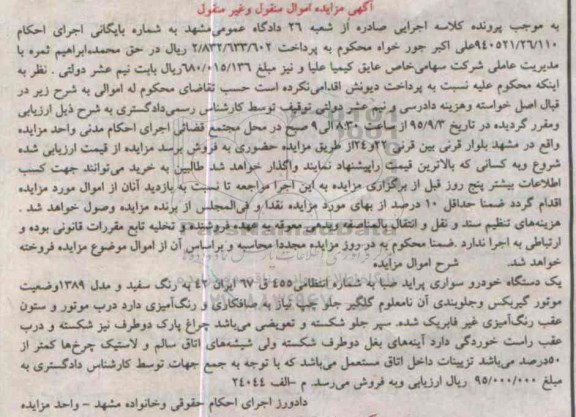 آگهی مزایده اموال منقول وغیر منقول
به موجب پرونده کلاسه اجرایی صادره از شعبه ۲۶ دادگاه عمومی‌مشهد به شماره بایگانی اجرای احکام
۹۴۰۵۲۱/۲۶/۱۱۰علی اکبر جور خواه محکوم به پرداخت ۲/۸۳۲/۶۳۳/۶۰۲ ریال در حق محمدابراهیم ثمره با
مدیریت عاملی شرکت سهامی‌خاص عایق کیمیا علیا و نیز مبلغ ۶۸۰/۰۱۵/۱۳۶ریال بابت نیم عشر دولتی . نظر به
اینکه محکوم علیه نسبت به پرداخت دیونش اقدامی‌نکرده است حسب تقاضای محکوم له اموالی به شرح زیر در
قبال اصل خواسته وهزینه دادرسی و نیم عشر دولتی توقیف توسط کارشناس رسمی‌دادگستری به شرح ذیل ارزیابی
ومقرر گردیده در تاریخ ۹۵/۹/۳ از ساعت ۸:۳۰ الی ۹ صبح در محل مجتمع قضائی اجرای احکام مدنی واحد مزایده
واقع در مشهد بلوار قرنی بین قرنی ۲۲و۲۴از طریق مزایده حضوری به فروش برسد مزایده از قیمت ارزیابی شده
شروع وبه کسانی که بالاترین قیمت راپیشنهاد نمایند واگذار خواهد شد طالبین به خرید می‌توانند جهت کسب
اطلاعات بیشتر پنج روز قبل از برگزاری مزایده به این اجرا مراجعه تا نسبت به بازدید آنان از اموال مورد مزایده
اقدام گردد ضمنا حداقل ۱۰ درصد از بهای مورد مزایده نقدا و فی‌المجلس از برنده مزایده وصول خواهد شد .
هزینه‌های تنظیم سند و نقل و انتقال بالمناصفه وبدهی معوقه به عهده فروشنده و تخلیه تابع مقررات قانونی بوده و
ارتباطی به اجرا ندارد .ضمنا محکوم به در روز مزایده مجددا محاسبه و براساس آن از اموال موضوع مزایده فروخته
خواهد شد. شرح اموال مزایده
یک دستگاه خودرو سواری پراید صبا به شماره انتظامی۴۵۵ ق ۶۷ ایران ۴۲ به رنگ سفید و مدل ۱۳۸۹وضعیت
موتور گیربکس وجلوبندی آن نامعلوم گلگیر جلو چپ نیاز به صافکاری و رنگ‌آمیزی دارد درب موتور و ستون
عقب رنگ‌آمیزی غیر فابریک شده. سپر جلو شکسته و تعویضی می‌باشد چراغ پارک دوطرف نیز شکسته و درب
عقب راست خوردگی دارد آینه‌های بغل دوطرف شکسته ولی شیشه‌های اتاق سالم و لاستیک چرخ‌ها کمتر از
۵۰درصد می‌باشد تزیینات داخل اتاق مستعمل می‌باشد که با توجه به جمع جهات توسط کارشناس دادگستری به
مبلغ ۹۵/۰۰۰/۰۰۰ ریال ارزیابی وبه فروش می‌رسد. م -الف ۲۴۰۴۴
دادورز اجرای احکام حقوقی وخانواده مشهد - واحد مزایده